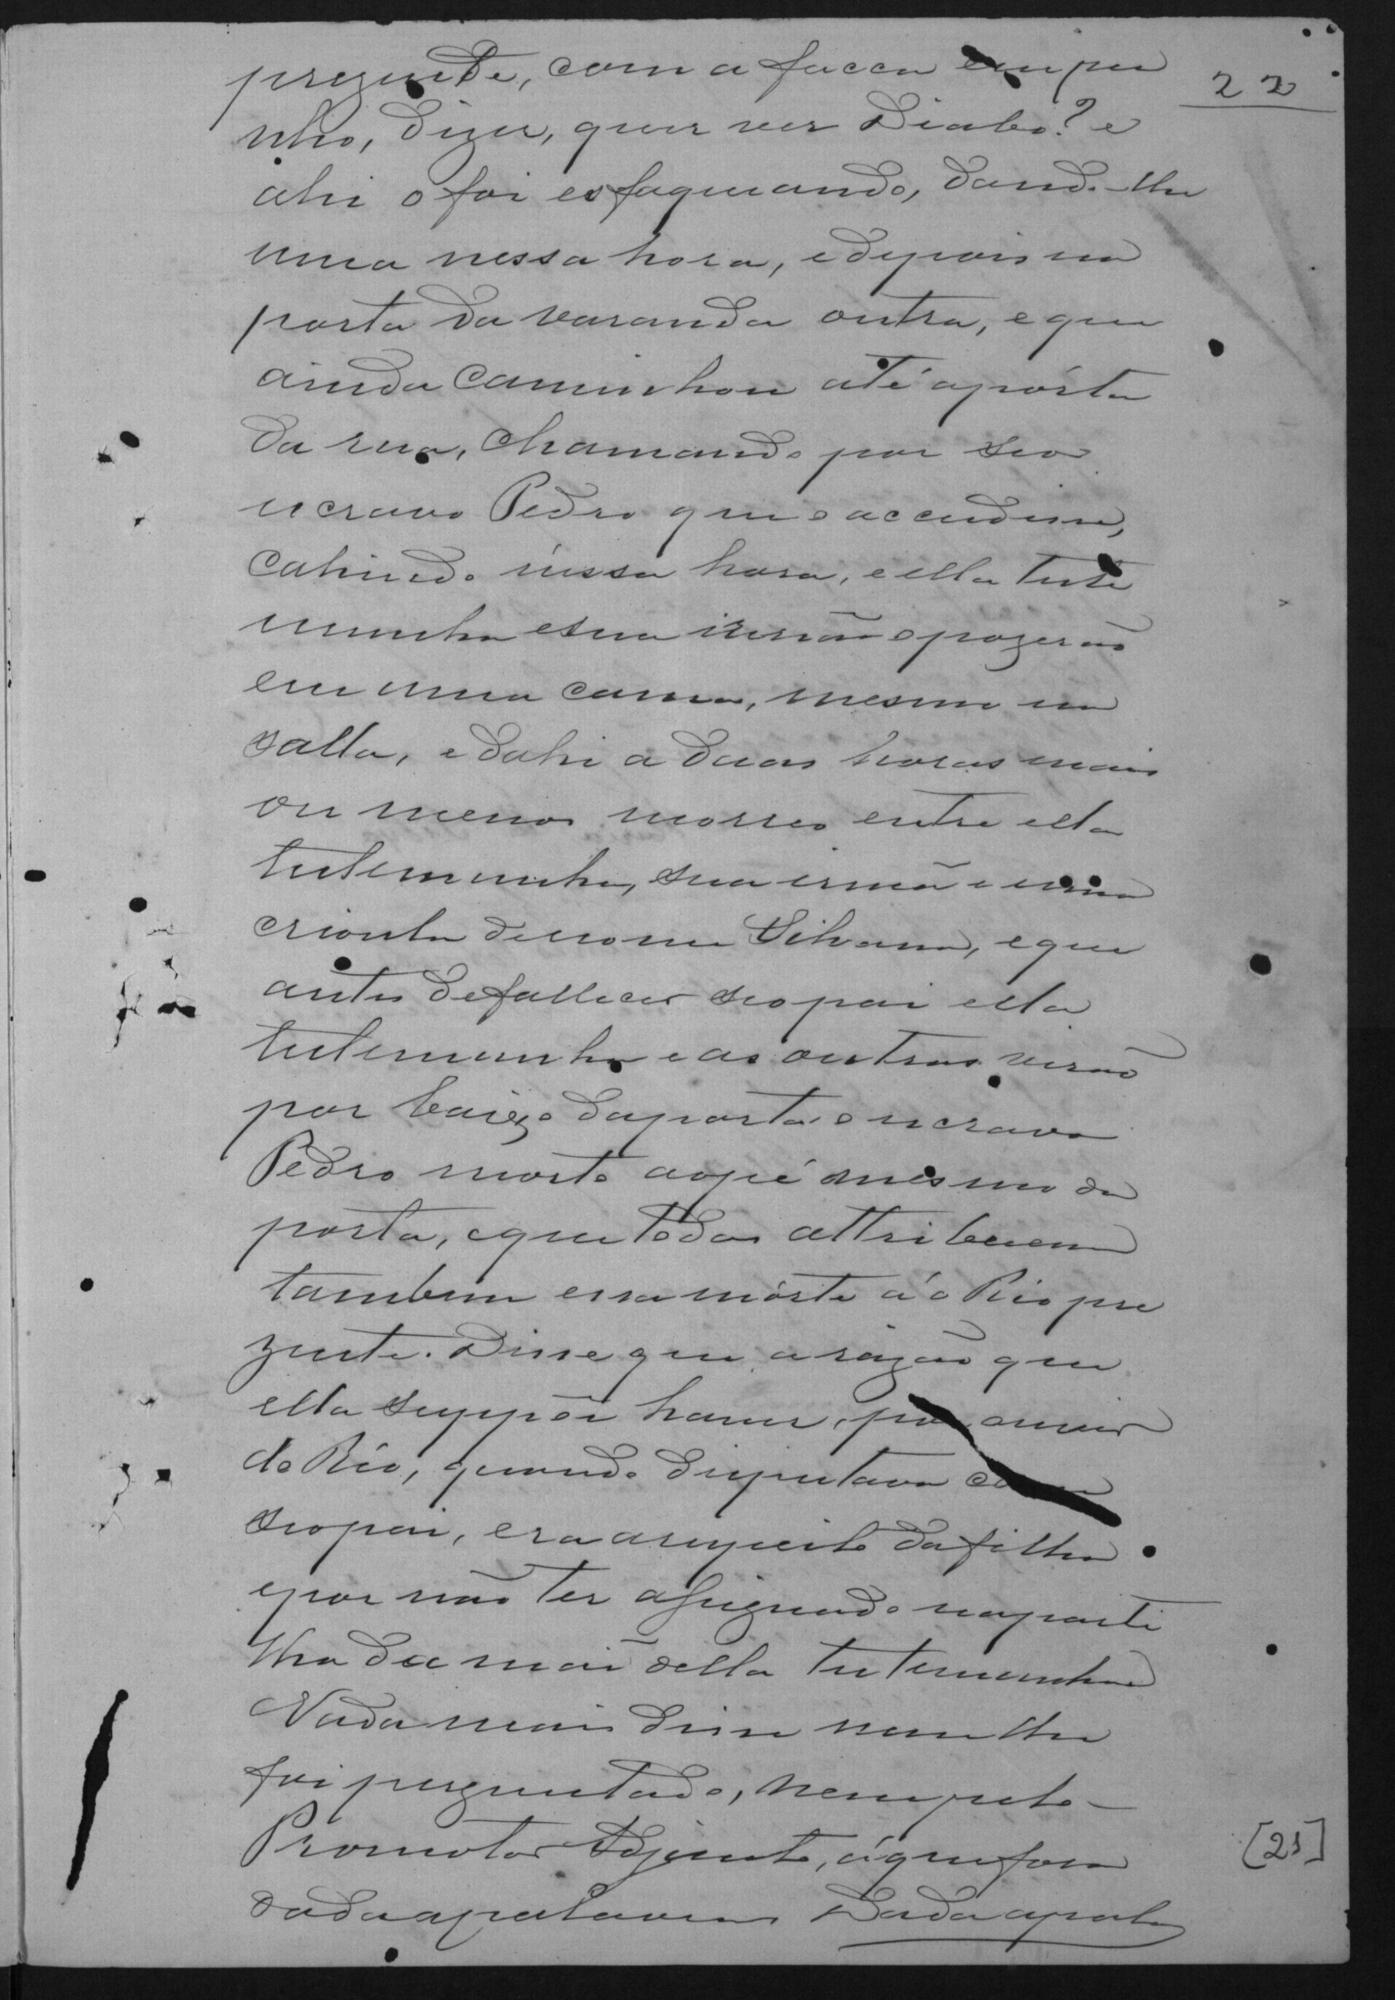 22
prezente, com a facca empu
nho, dizer, quer ver Diabo? e
ahi o foi esfaqueando, dando-lhe
uma nessa hora, e depois na
porta da varanda outra, e que
ainda caminhou até a pórta
da rua, chamando por seo
escravo Pedro que o accudisse,
cahindo nessa hora, e ella teste
munha e sua irmão o pozerão
em uma cama, mesmo na
salla, e dahi a duas horas mais
ou menos morreo entre ella
testemunha, sua irmã e uma
crioula de nome Silvana, e que
antes de fallecer seo pai ella
testemunha e as outras virão
por baixo da porta o escravo
Pedro morto ao pé mesmo da
porta, e que todos attribuem
tambem essa mórte á o Réo pre
zente. Disse que a razão que
ella suppõe haver, por ouvir
do Réo, quando disputava com
seo pai, era a respeito da filha
e por não ter assignado na parti
lha da mãi della testemunha
Nada mais disse nem lhe
foi perguntado, nem pelo
Promotor Adjunto, á que fora
dada a palavra Dada a pala
[21]